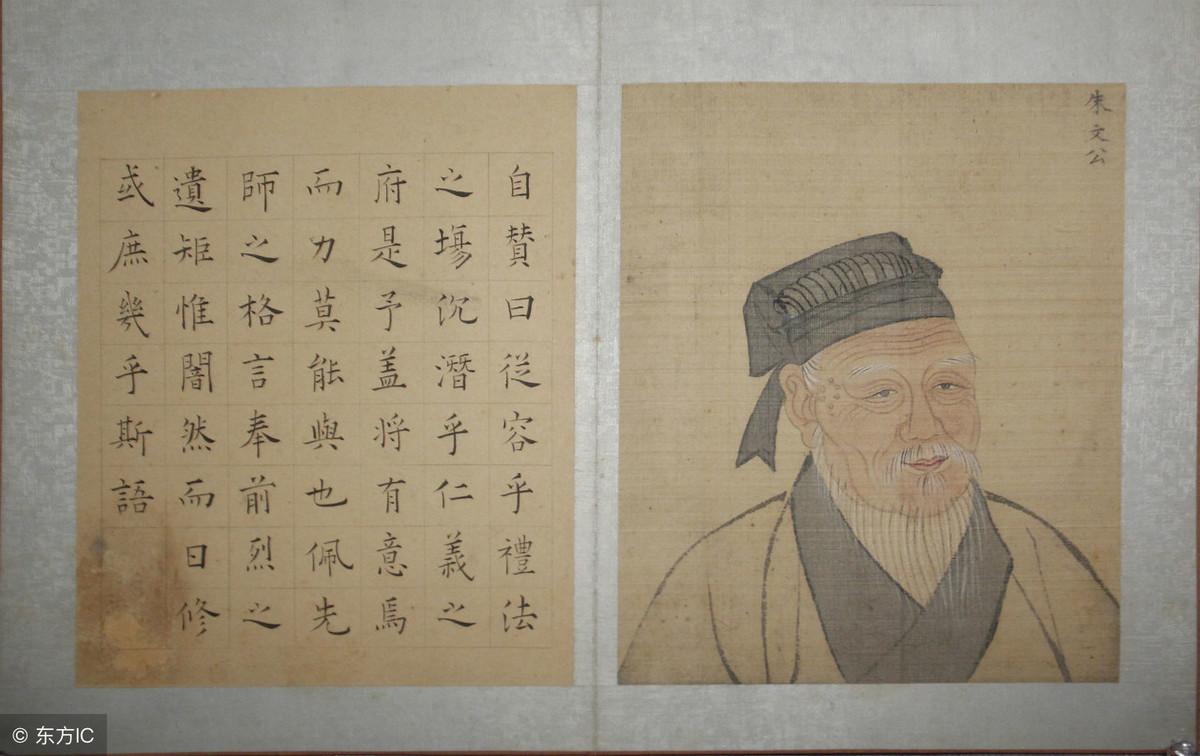 朱文公
自贊曰從容乎禮法
之場沉潛乎仁義之
府是予盖将有意焉
而力莫能與也佩先
師之格言奉前烈之
遺矩惟闇然而日修
或庶幾乎斯語
© 东方IC